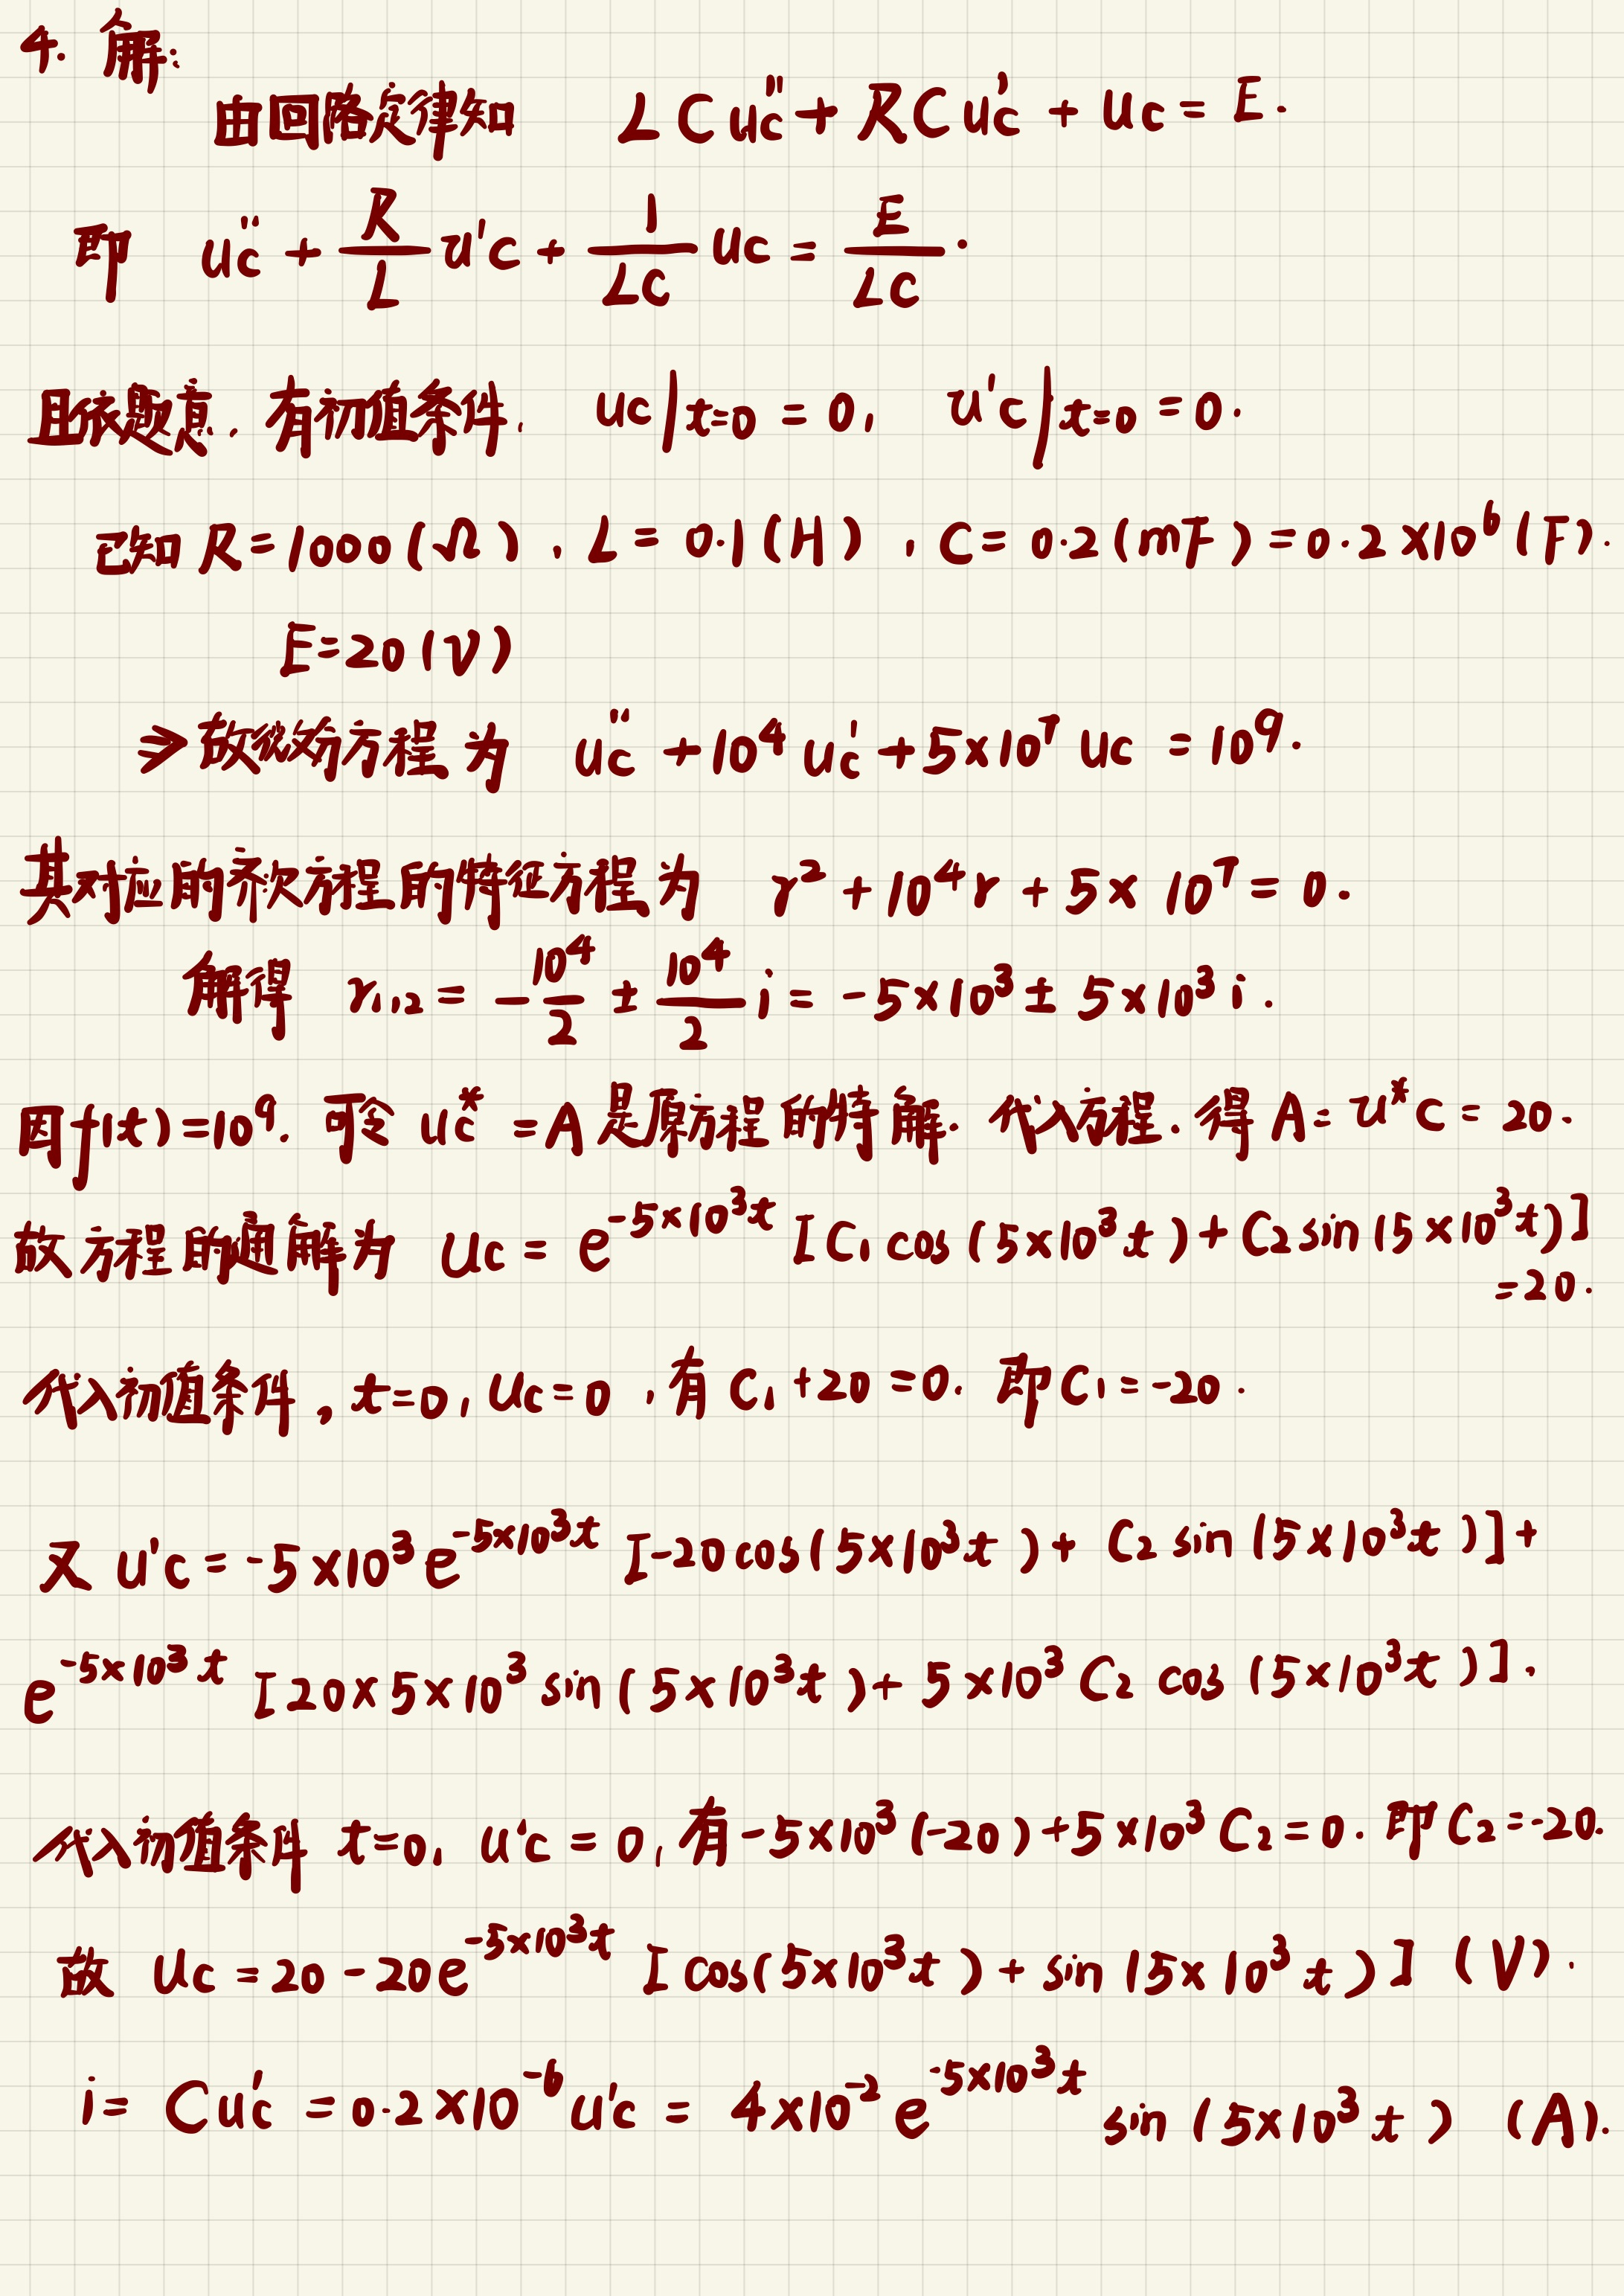 4. 解:
由回路定律知 LCu_C'' + RCu_C' + u_C = E.
即 u_C'' + \frac{R}{L} u'_C + \frac{1}{LC} u_C = \frac{E}{LC}.
且依题意. 有初值条件. u_C|_{t=0} = 0, u'_C|_{t=0} = 0.
已知 R=1000(Ω), L=0.1(H), C=0.2(mF)=0.2×10^6(F).
E=20(V)
⇒故微分方程为 u_C'' + 10^4 u_C' + 5×10^7 u_C = 10^9.
其对应的齐次方程的特征方程为 r^2 + 10^4 r + 5×10^7 = 0.
解得 r_{1,2} = -\frac{10^4}{2} ± \frac{10^4}{2} i = -5×10^3 ± 5×10^3 i.
因f(t)=10^9. 可令 u_C^* = A是原方程的特解. 代入方程. 得 A = u^*_C = 20.
故方程的通解为 u_C = e^{-5×10^3t} [C_1 cos(5×10^3t) + C_2 sin(5×10^3t)]
=20.
代入初值条件, t=0, u_C=0, 有 C_1+20=0. 即 C_1=-20.
又 u'_C = -5×10^3 e^{-5×10^3t} [-20cos(5×10^3t) + C_2 sin(5×10^3t)] +
e^{-5×10^3t} [20×5×10^3 sin(5×10^3t) + 5×10^3 C_2 cos(5×10^3t)].
代入初值条件 t=0, u'_C=0, 有-5×10^3(-20)+5×10^3 C_2=0. 即 C_2=-20.
故 u_C = 20-20e^{-5×10^3t} [cos(5×10^3t) + sin(5×10^3t)] (V).
i = Cu_C' = 0.2×10^{-6} u'_C = 4×10^{-2} e^{-5×10^3t} sin(5×10^3t) (A).